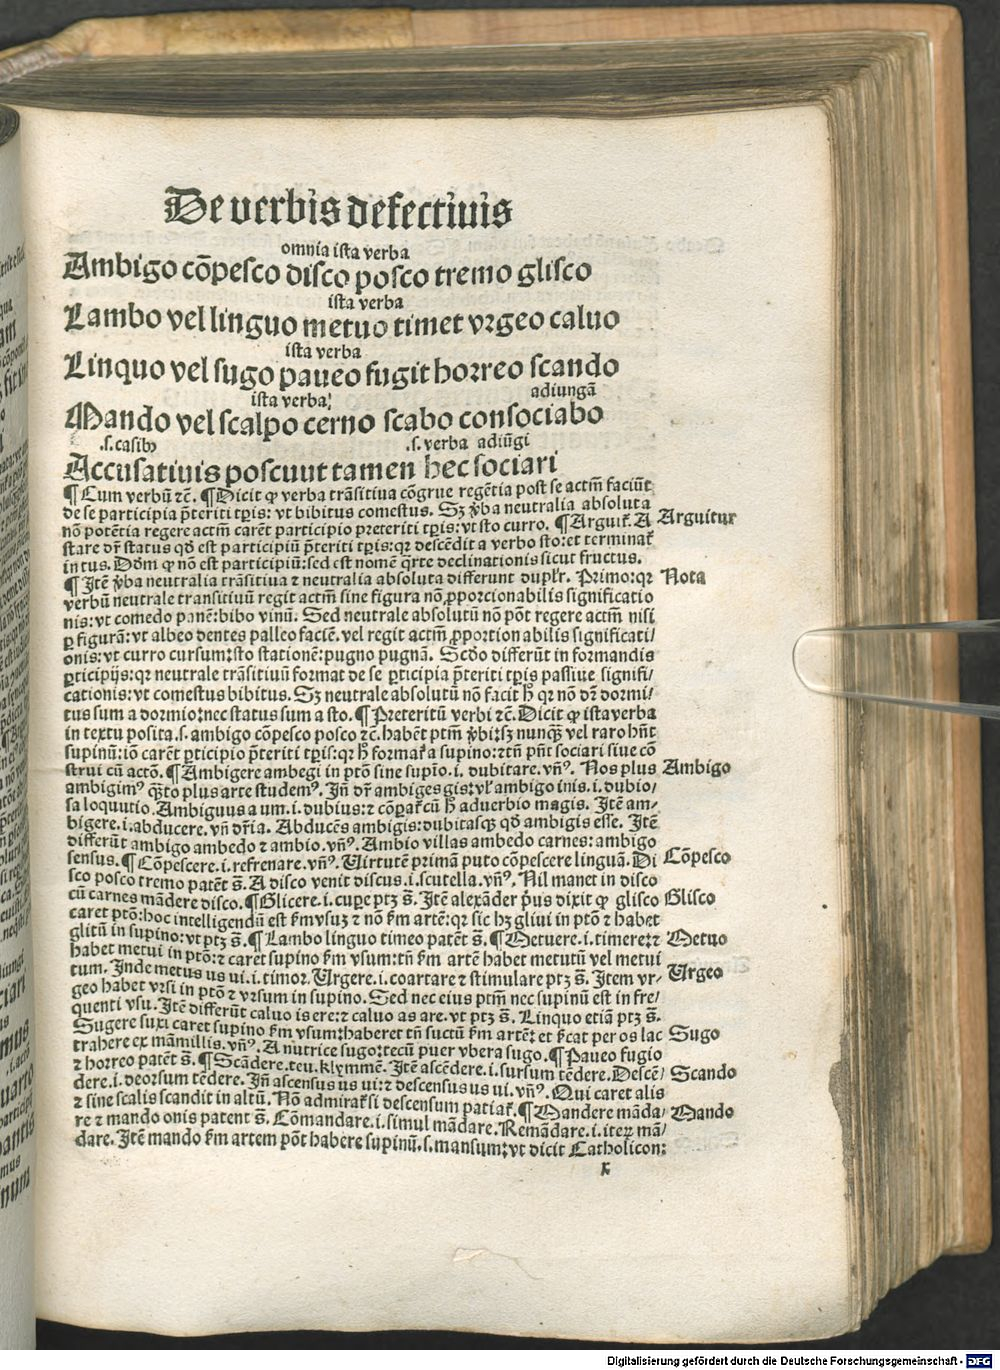 De verbis defectiuis
omnia ista verba
Ambigo cōpesco disco posco tremo glisco
ista verba
Lambo vel linguo metuo timet vrgeo caluo
ista verba
Linquo vel sugo paueo fugit horreo scando
ista verba: adiungā
Mando vel scalpo cerno scabo consociabo
.s.casibꝰ .s.verba adiūgi
Accusatiuis poscuut tamen hec sociari
¶ Cum verbū ⁊c̄. ¶ Dicit ꝙ verba trāsitiua cōgrue regētia post se actm̄ faciūt
de se participia p̄teriti tp̄is: vt bibitus comestus. Sꝫ v̓ba neutralia absoluta
nō potētia regere actm̄ carēt participio preteriti tp̄is: vt sto curro. ¶ Arguit̄. A Arguitur
stare dr̄ status qd̄ est participiū p̄teriti tp̄is: qꝛ descēdit a verbo sto: et terminat̄
in tus. Dd̄m ꝙ nō est participiū: sed est nomē q̄rte declinationis sicut fructus.
¶ Itē v̓ba neutralia trāsitiua ⁊ neutralia absoluta differunt duplr̄. Primo: qꝛ Nota
verbū neutrale transitiuū regit actm̄ sine figura nō ꝓporcionabilis significatio
nis: vt comedo panē: bibo vinū. Sed neutrale absolutū nō pōt regere actm̄ nisi
ꝑ figurā: vt albeo dentes palleo faciē. vel regit actm̄ ꝓportionabilis significati/
onis: vt curro cursum: sto stationē: pugno pugnā. Scd̄o differūt in formandis
ꝑticipijs: qꝛ neutrale trāsitiuū format de se ꝑticipia p̄teriti tp̄is passiue signifi/
cationis: vt comestus bibitus. Sꝫ neutrale absolutū nō facit h̄ qꝛ nō dr̄ dormi/
tus sum a dormio: nec status sum a sto. ¶ Preteritū verbi ⁊c̄. Dicit ꝙ ista verba
in textu posita .s. ambigo cōpesco posco ⁊c̄. habēt ptm̄ v̓bi: sꝫ nunqꝫ vel raro hn̄t
supinū: iō carēt ꝑticipio p̄teriti tp̄is: qꝛ h̄ format̄ a supino: ⁊ tn̄ pn̄t sociari siue cō
strui cū actō. ¶ Ambigere ambegi in ptō sine supīo .i. dubitare. vn̄ꝰ. Nos plus Ambigo
ambigimꝰ q̄sto plus arte studemꝰ. In̄ dr̄ ambiges gis: vl̓ ambigo inis .i. dubio/
sa loquutio. Ambiguus a um .i. dubius: ⁊ cōparat̄ cū h̄ aduerbio magis. Itē am-
bigere .i. abducere. vn̄ dr̄ia. Abducēs ambigis: dubitasqꝫ qd̄ ambigis esse. Itē
differūt ambigo ambedo ⁊ ambio. vn̄ꝰ. Ambio villas ambedo carnes: ambigo
sensus. ¶ Cōpescere .i. refrenare. vn̄ꝰ. Uirtutē primā puto cōpescere linguā. Di Cōpesco
sco posco tremo patēt s̄. A disco venit discus .i. scutella. vn̄ꝰ. Nil manet in disco
cū carnes mādere disco. ¶ Glicere .i. cuꝑe ptꝫ s̄. Itē alexāder p̄us dixit ꝙ glisco Glisco
caret ptō: hoc intelligendū est km̄ vsuꝫ ⁊ nō km̄ artē: qꝛ sic hꝫ gliui in ptō ⁊ habet
glitū in supino: vt ptꝫ s̄. ¶ Lambo linguo timeo patēt s̄. ¶ Metuere .i. timere: ⁊ Metuo
habet metui in ptō: ⁊ caret supino km̄ vsum: tn̄ km̄ artē habet metutū vel metui
tum. Inde metus us ui .i. timor. Urgere .i. coartare ⁊ stimulare ptꝫ s̄. Item vr- Urgeo
geo habet vrsi in ptō ⁊ vrsum in supino. Sed nec eius ptm̄ nec supinū est in fre/
quenti vsu. Itē differūt caluo is ere: ⁊ caluo as are. vt ptꝫ s̄. Linquo etiā ptꝫ s̄.
Sugere suxi caret supino km̄ vsum: haberet tn̄ suctū km̄ artē: et kc̄at per os lac Sugo
trahere ex māmillis. vn̄ꝰ. A nutrice sugo: tecū puer vbera sugo. ¶ Paueo fugio
⁊ horreo patēt s̄. ¶ Scādere. teu. klymmē. Itē ascēdere .i. sursum tēdere. Descē/ Scando
dere .i. deorsum tēdere. In̄ ascensus us ui: ⁊ descensus us ui. vn̄ꝰ. Qui caret alis
⁊ sine scalis scandit in altū. Nō admirat̄ si descensum patiat̄. ¶ Mandere māda/ Mando
re ⁊ mando onis patent s̄. Cōmandare .i. simul mādare. Remādare .i. iteꝝ mā/
dare. Itē mando km̄ artem pōt habere supinū .s. mansum: vt dicit Catholicon:
k
Digitalisierung gefördert durch die Deutsche Forschungsgemeinschaft - DFG